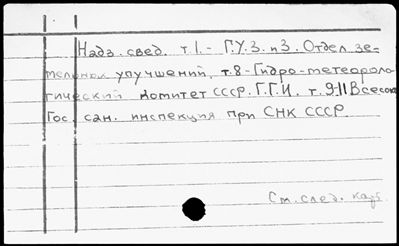 Надз. свед. т.1.- Г.У.З. и З. Отдел зе-
мельных улучшений, т.8-Гидро-метеороло-
гический комитет СССР. Г.Г.И. т.9-11 Всесоюз
Гос. сан. инспекция при СНК СССР.
См. след. карт.